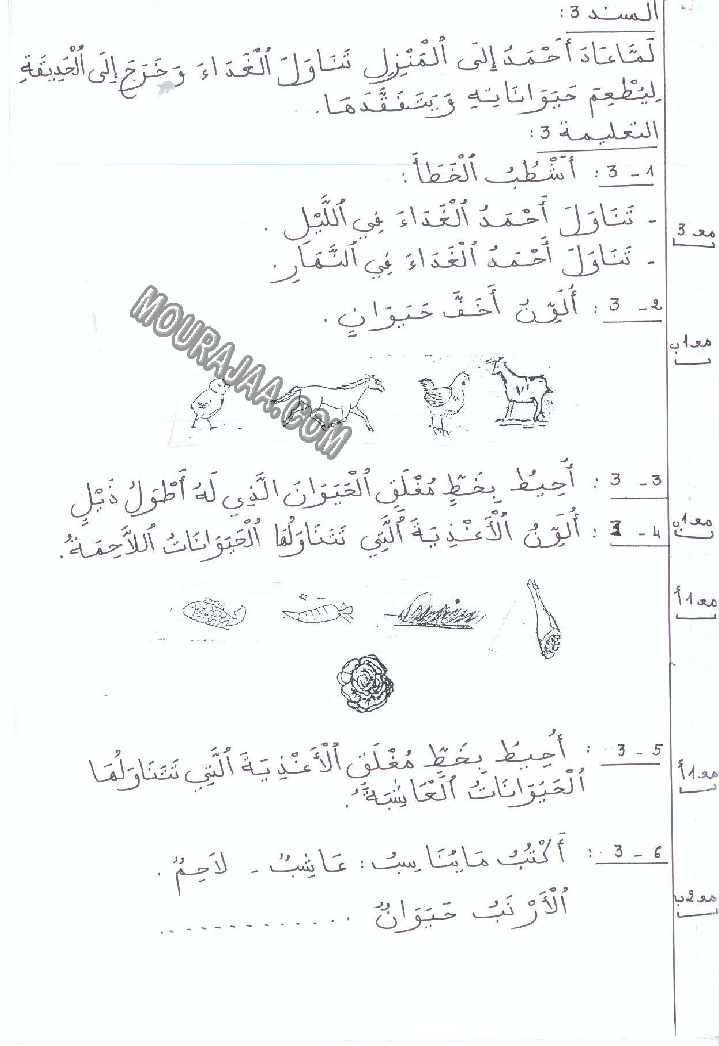 السند 3 :
لَمَّا عَادَ أَحْمَدُ إِلَى الْمَنْزِلِ تَنَاوَلَ الْغَدَاءَ وَخَرَجَ إِلَى الْحَدِيقَةِ
لِيُطْعِمَ حَيَوَانَاتِهِ وَيَتَفَقَّدَهَا.
التعليمة 3 :
3 - 1 : أَشْطُبُ الْخَطَأَ :
- تَنَاوَلَ أَحْمَدُ الْغَدَاءَ فِي اللَّيْلِ .
مع 3
- تَنَاوَلَ أَحْمَدُ الْغَدَاءَ فِي النَّهَارِ.
3 - 2 : أُلَوِّنُ أَخَفَّ حَيَوَانٍ .
مع 1ب
MOURAJAA.COM
3 - 3 : أُحِيطُ بِخَطٍّ مُغْلَقٍ الْحَيَوَانَ الَّذِي لَهُ أَطْوَلُ ذَيْلٍ
مع 1ب
3 - 4 : أُلَوِّنُ الْأَغْذِيَةَ الَّتِي تَتَنَاوَلُهَا الْحَيَوَانَاتُ اللَّاحِمَةُ.
مع 1أ
3 - 5 : أُحِيطُ بِخَطٍّ مُغْلَقٍ الْأَغْذِيَةَ الَّتِي تَتَنَاوَلُهَا
مع 1أ
الْحَيَوَانَاتُ الْعَاشِبَةُ.
3 - 6 : أَكْتُبُ مَا يُنَاسِبُ : عَاشِبٌ - لَاحِمٌ .
مع 2ب
الْأَرْنَبُ حَيَوَانٌ ............